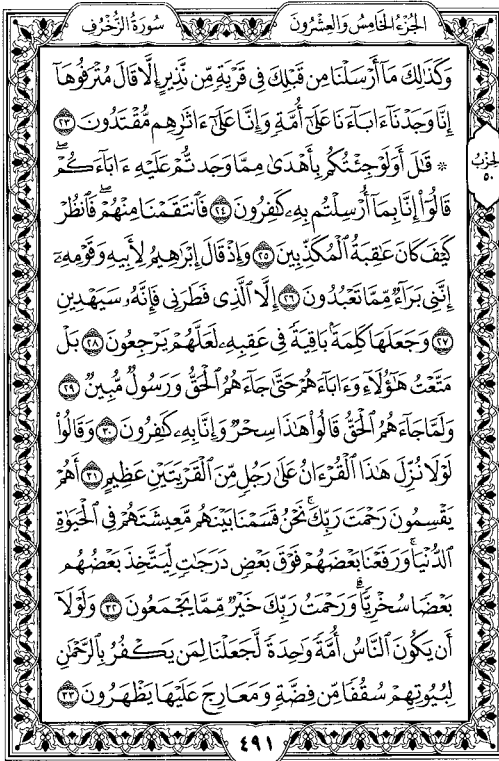 الجزء الخامس والعشرون
سورة الزخرف
وَكَذَٰلِكَ مَآ أَرْسَلْنَا مِن قَبْلِكَ فِي قَرْيَةٍ مِّن نَّذِيرٍ إِلَّا قَالَ مُتْرَفُوهَآ
إِنَّا وَجَدْنَآ ءَابَآءَنَا عَلَىٰٓ أُمَّةٍ وَإِنَّا عَلَىٰٓ ءَاثَٰرِهِم مُّقْتَدُونَ ٢٣
۞ قَٰلَ أَوَلَوْ جِئْتُكُم بِأَهْدَىٰ مِمَّا وَجَدتُّمْ عَلَيْهِ ءَابَآءَكُمْ ۖ
قَالُوٓا۟ إِنَّا بِمَآ أُرْسِلْتُم بِهِۦ كَٰفِرُونَ ٢٤ فَٱنتَقَمْنَا مِنْهُمْ ۖ فَٱنظُرْ
كَيْفَ كَانَ عَٰقِبَةُ ٱلْمُكَذِّبِينَ ٢٥ وَإِذْ قَالَ إِبْرَٰهِيمُ لِأَبِيهِ وَقَوْمِهِۦٓ
إِنَّنِي بَرَآءٌ مِّمَّا تَعْبُدُونَ ٢٦ إِلَّا ٱلَّذِي فَطَرَنِي فَإِنَّهُۥ سَيَهْدِينِ
٢٧ وَجَعَلَهَا كَلِمَةًۢ بَاقِيَةً فِي عَقِبِهِۦ لَعَلَّهُمْ يَرْجِعُونَ ٢٨ بَلْ
مَتَّعْتُ هَٰٓؤُلَآءِ وَءَابَآءَهُمْ حَتَّىٰ جَآءَهُمُ ٱلْحَقُّ وَرَسُولٌ مُّبِينٌ ٢٩
وَلَمَّا جَآءَهُمُ ٱلْحَقُّ قَالُوا۟ هَٰذَا سِحْرٌ وَإِنَّا بِهِۦ كَٰفِرُونَ ٣٠ وَقَالُوا۟
لَوْلَا نُزِّلَ هَٰذَا ٱلْقُرْءَانُ عَلَىٰ رَجُلٍ مِّنَ ٱلْقَرْيَتَيْنِ عَظِيمٍ ٣١ أَهُمْ
يَقْسِمُونَ رَحْمَتَ رَبِّكَ ۚ نَحْنُ قَسَمْنَا بَيْنَهُم مَّعِيشَتَهُمْ فِي ٱلْحَيَوٰةِ
ٱلدُّنْيَا ۚ وَرَفَعْنَا بَعْضَهُمْ فَوْقَ بَعْضٍ دَرَجَٰتٍ لِّيَتَّخِذَ بَعْضُهُم
بَعْضًا سُخْرِيًّا ۗ وَرَحْمَتُ رَبِّكَ خَيْرٌ مِّمَّا يَجْمَعُونَ ٣٢ وَلَوْلَآ
أَن يَكُونَ ٱلنَّاسُ أُمَّةً وَٰحِدَةً لَّجَعَلْنَا لِمَن يَكْفُرُ بِٱلرَّحْمَٰنِ
لِبُيُوتِهِمْ سُقُفًا مِّن فِضَّةٍ وَمَعَارِجَ عَلَيْهَا يَظْهَرُونَ ٣٣
٤٩١
لحزب
٥٠